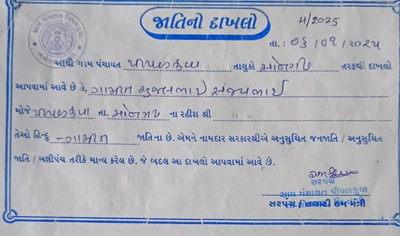 જાતિનો દાખલો
4/2025
તા.: ૦૬/૦૧/૨૦૨૫
આથી ગામ પંચાયત પીપળકુવા તાલુકો સોનગઢ તરફથી દાખલો
આપવામાં આવે છે કે, ગામીત
મોજે પીપળકુવા તા. સોનગઢ ના રહીશ શ્રી
તેઓ હિન્દુ - ગામીત જાતિના છે. એમને નામદાર સરકારશ્રીએ અનુસુચિત જનજાતિ / અનુસુચિત
જાતિ / બક્ષીપંચ તરીકે માન્ય કરેલ છે. જે બદલ આ દાખલો આપવામાં આવે છે.
સરપંચ
ગ્રામ પંચાયત પીપળકુવા
સરપંચ / તલાટી કમ મંત્રી